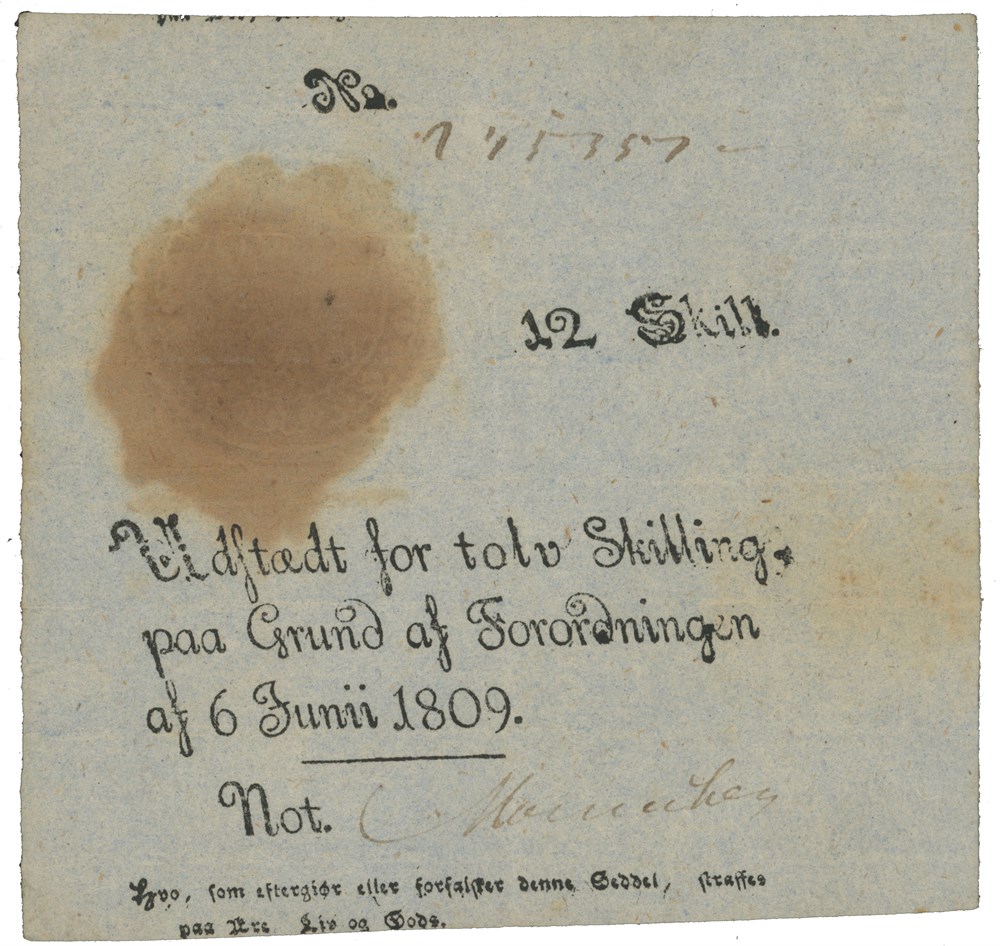 No.
145357
12 Skill.
Udstædt for tolv Skilling,
paa Grund af Forordningen
af 6 Junii 1809.
Not.
Hvo, som eftergiør eller forfalsker denne Seddel, straffes
paa Ære Liv og Gods.